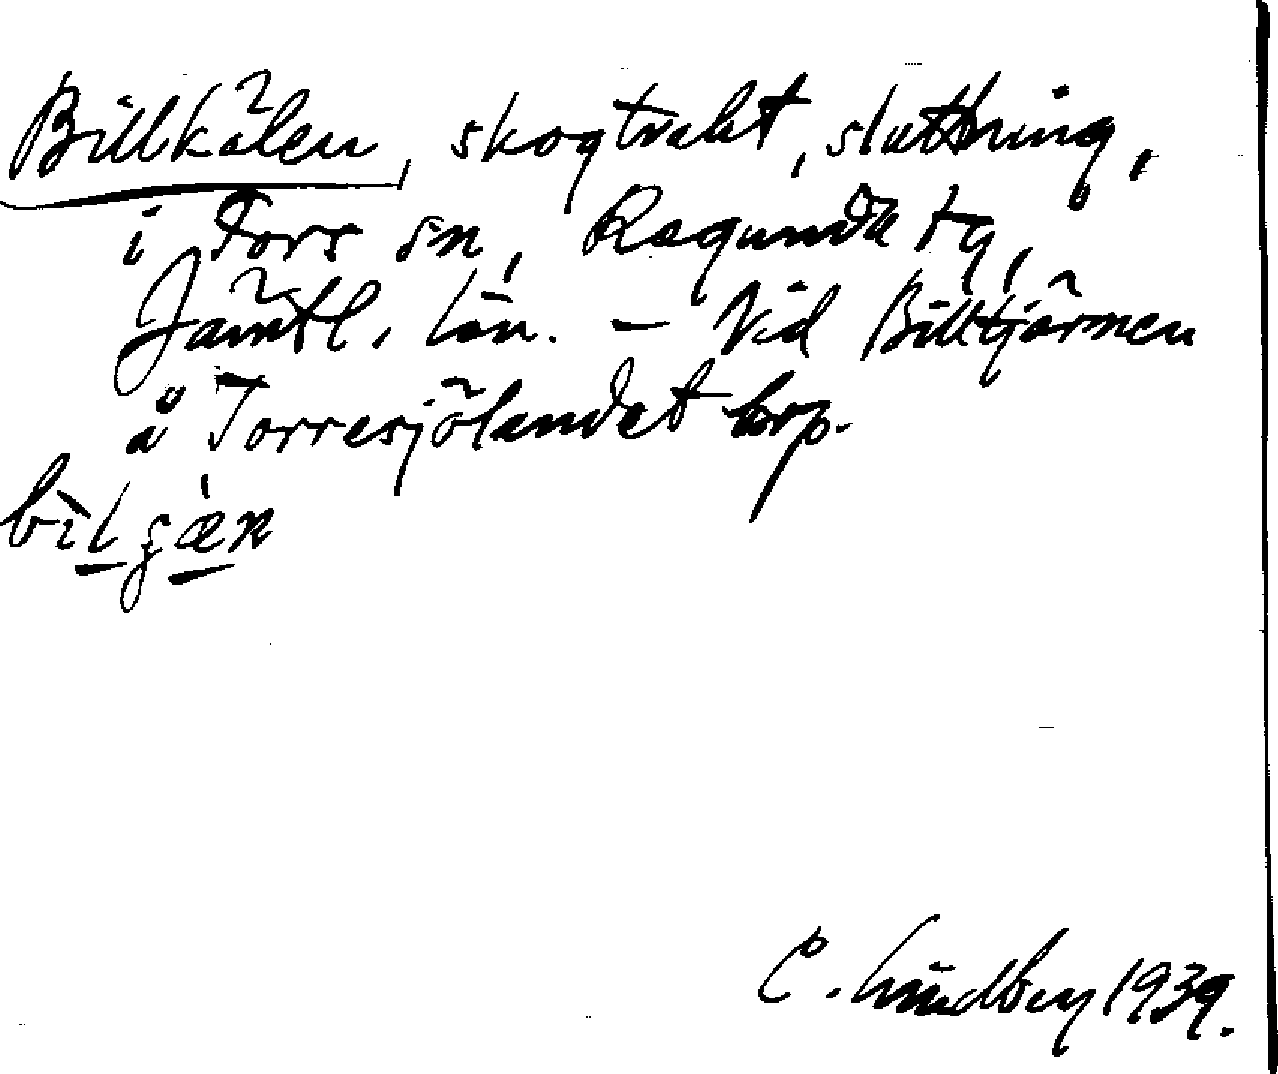 Billkälen, skogtrakt, sluttning,
i Fors sn, Ragunda tg,
Jämtl. län. – Vid Billtjärnen
å Torresjölandet torp.
C. Lundbey 1939.